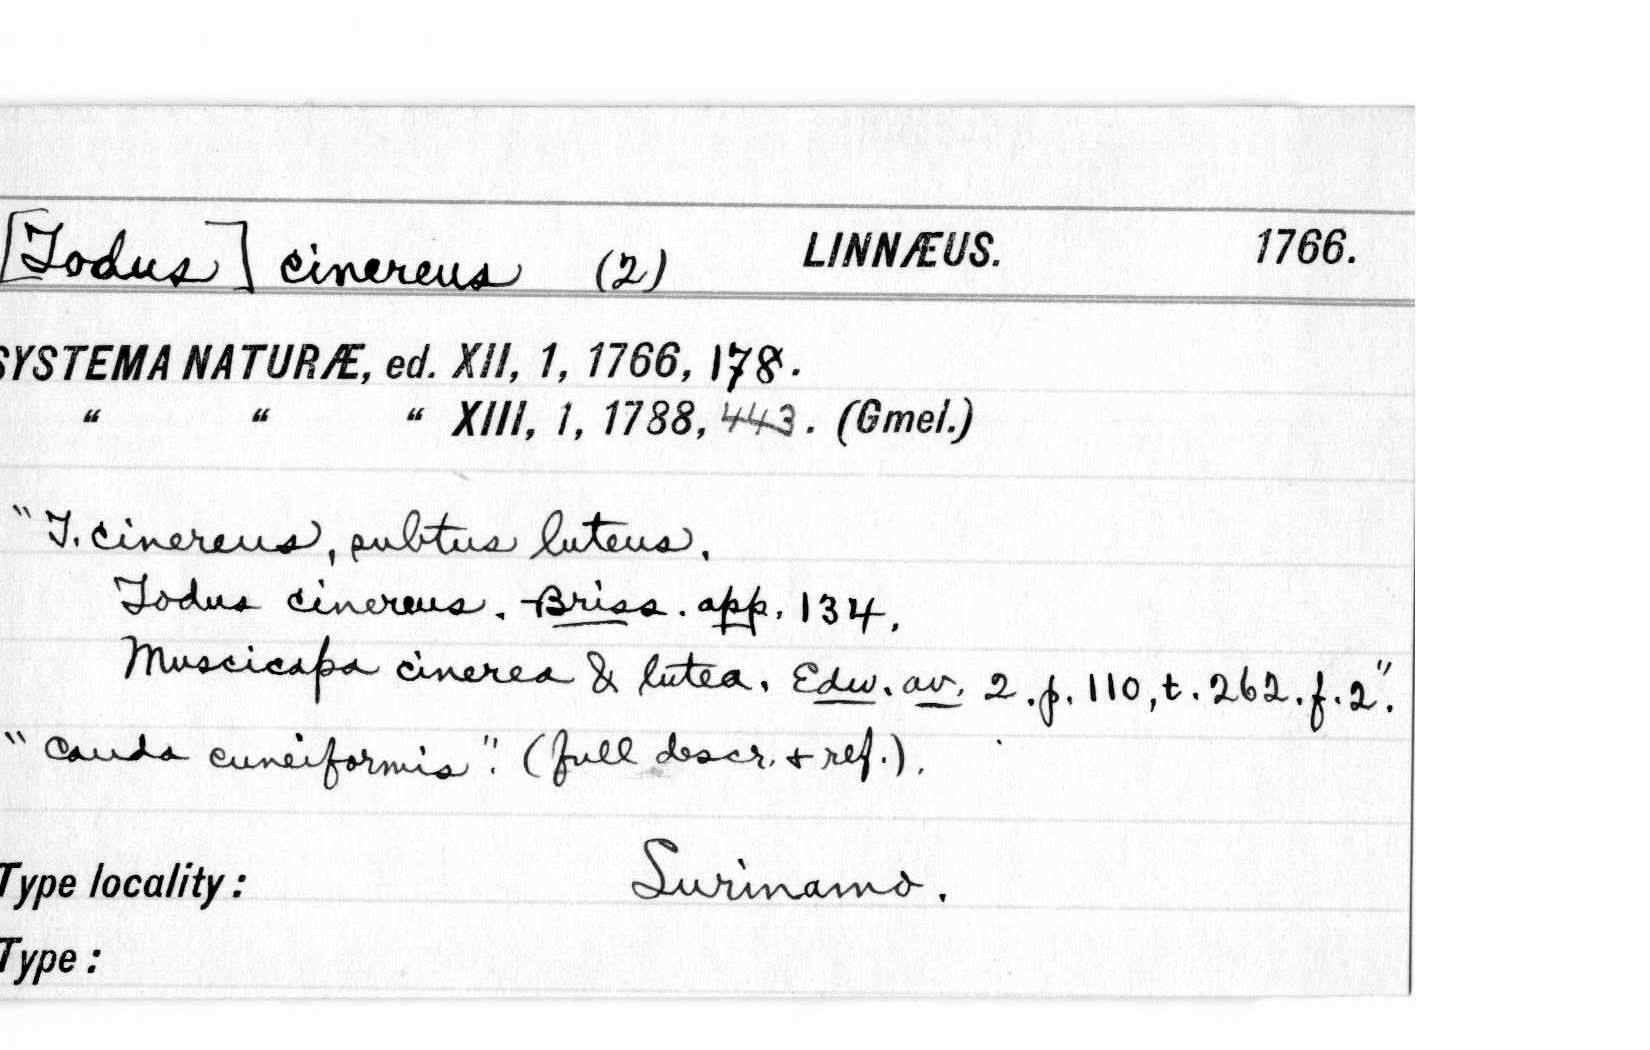 [Todus] cinereus (2) LINNÆUS. 1766.
SYSTEMA NATURÆ, ed. XII, 1, 1766, 178.
“ “ “ XIII, 1, 1788, 443. (Gmel.)
"T. cinereus, subtus luteus.
Todus cinereus. Briss. app. 134.
Muscicapa cinerea & lutea. Edw. av. 2. p. 110, t. 262. f. 2".
"Cauda cuneiformis". (full descr. + ref.).
Type locality: Surinamo.
Type: